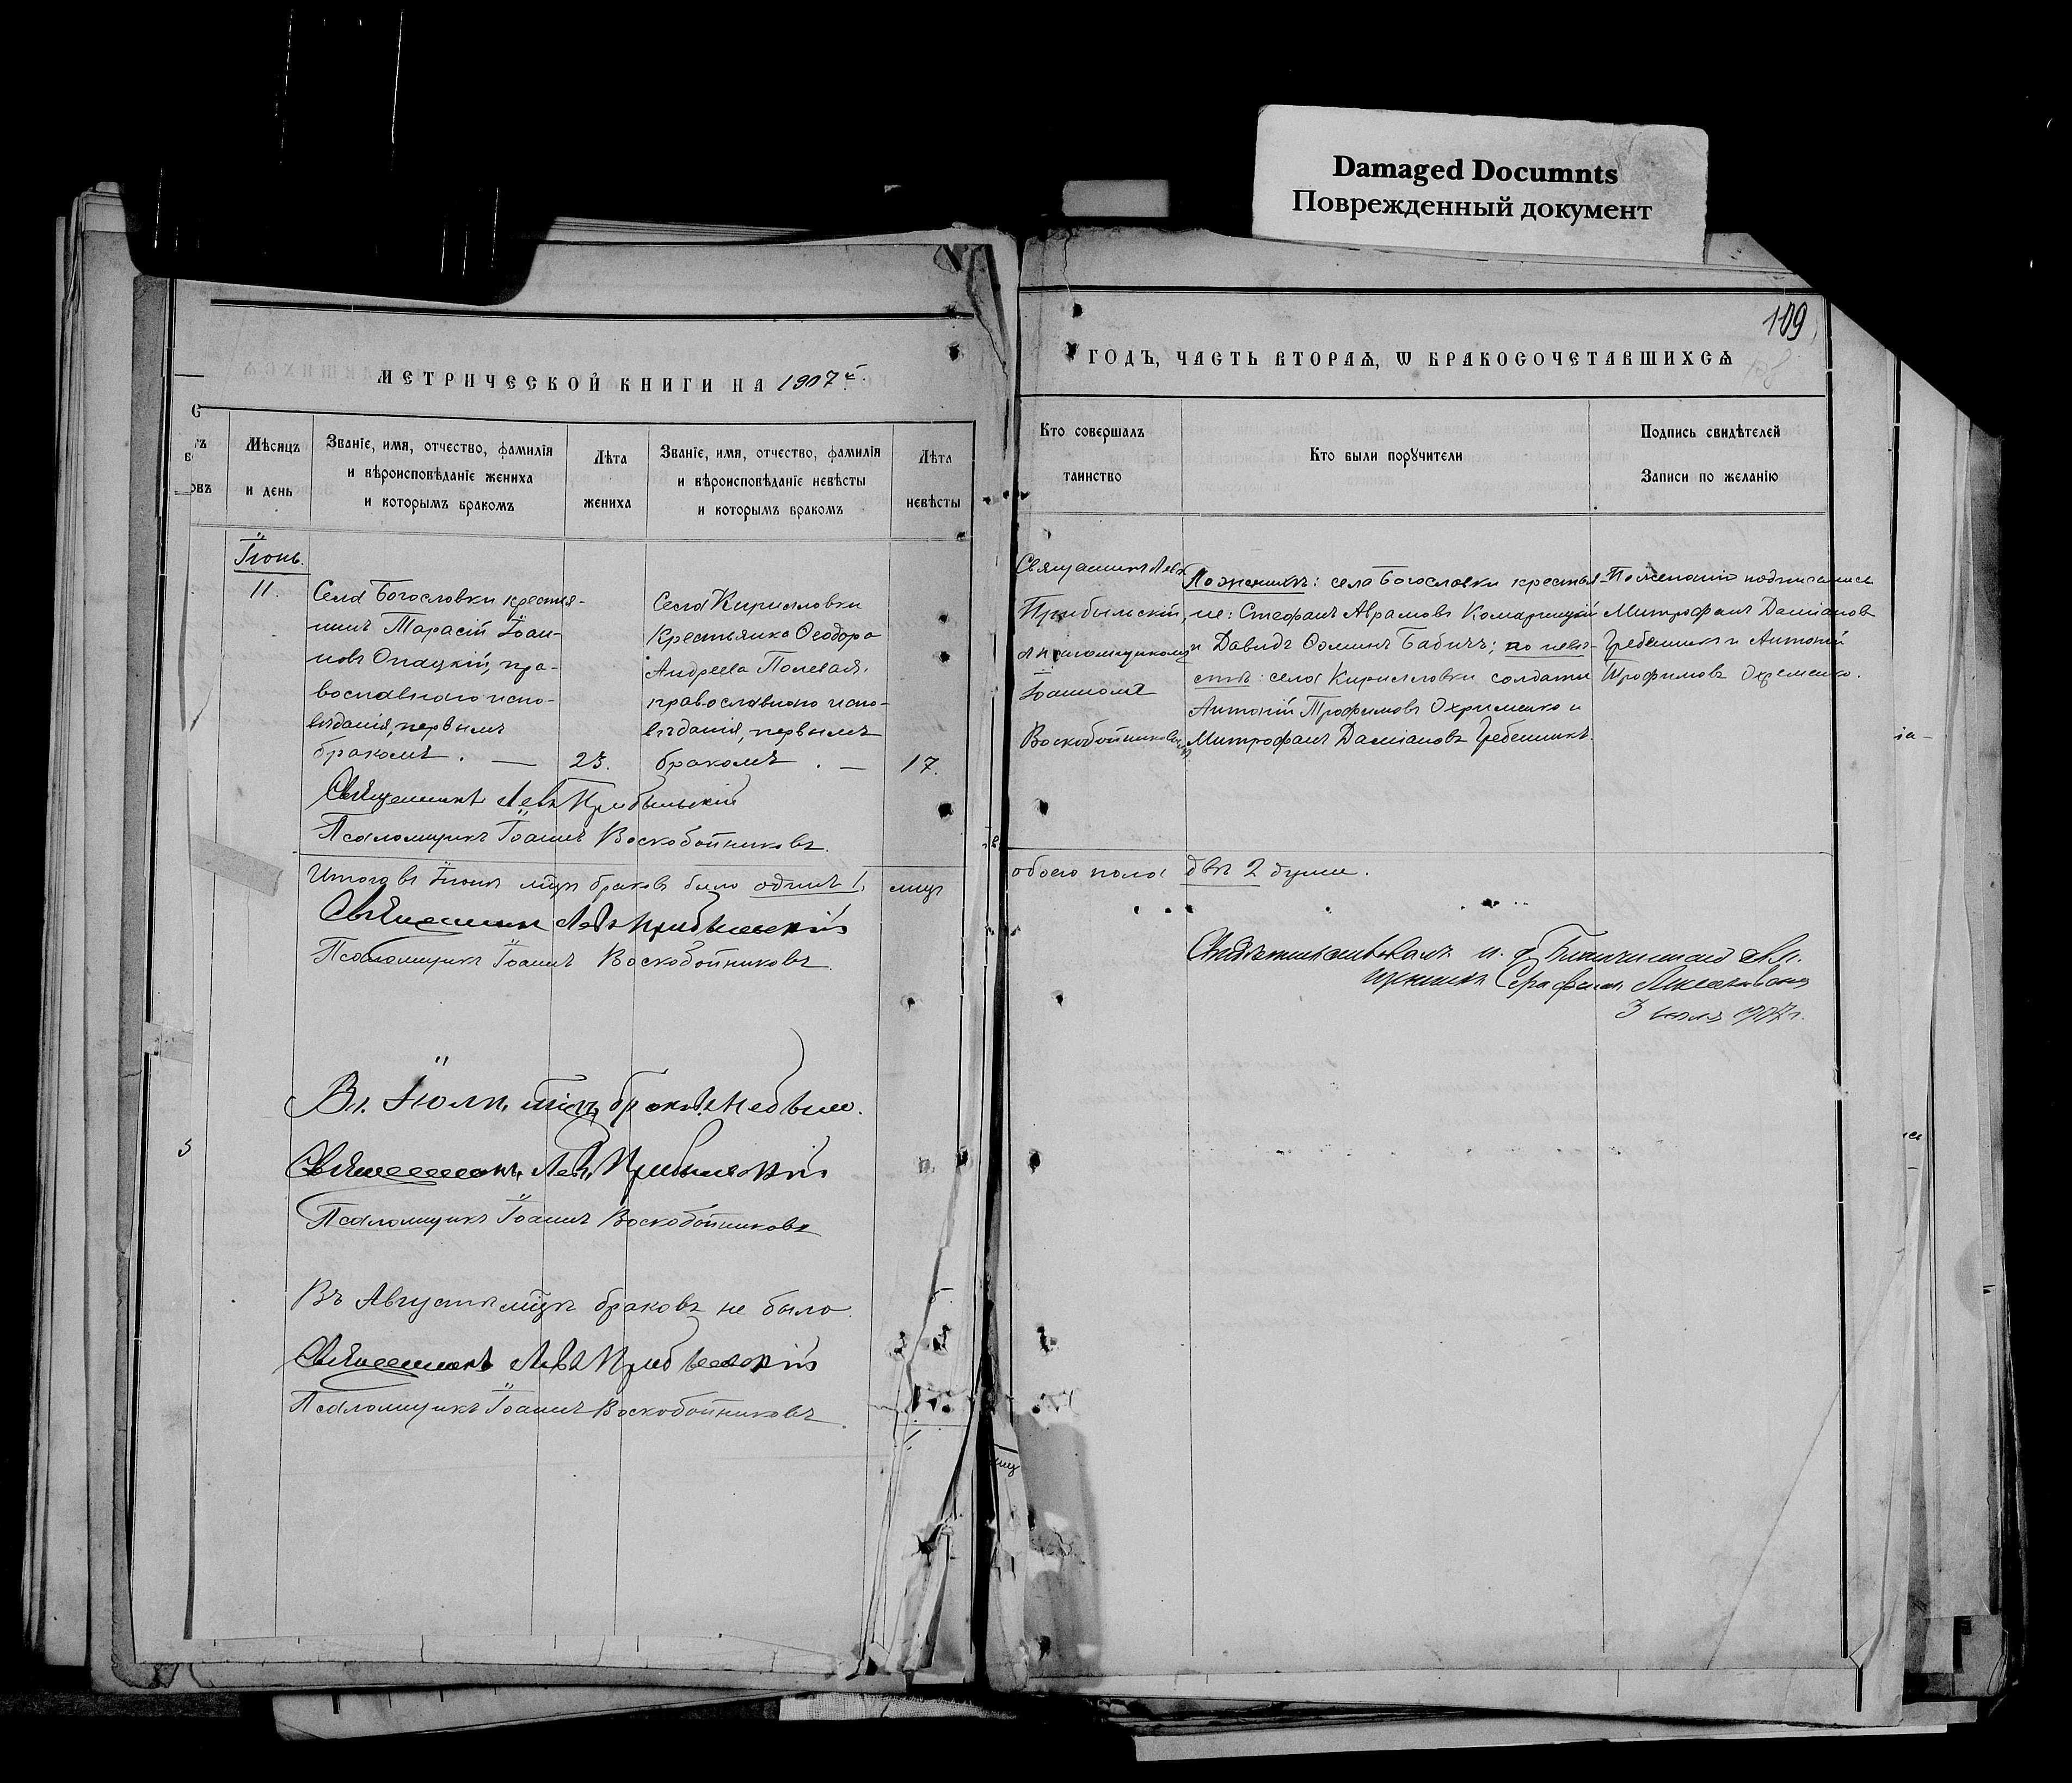 Damaged Documnts
Поврежденный документ
109
МЕТРИЧЕСКОЙ КНИГИ НА 1907 й
ГОДЪ, ЧАСТЬ ВТОРАЯ, Ѡ БРАКОСОЧЕТАВШИХСЯ
Мѣсяцъ
и день
Званіе, имя, отчество, фамилія
и вѣроисповѣданіе жениха
и которымъ бракомъ
Лѣта
жениха
Званіе, имя, отчество, фамилія
и вѣроисповѣданіе невѣсты
и которымъ бракомъ
Лѣта
невѣсты
Кто совершалъ
таинство
Кто были поручители
Подпись свидѣтелей
Записи по желанію
Іюнь.
11.
Села Богословки крестья-
нинъ Тарасій Іоан-
новъ Опацкій, пра-
вославнаго испо-
вѣданія, первымъ
бракомъ. —
23.
Села Кирилловки
крестьянка Ѳеодора
Андреева Полевая,
православнаго испо-
вѣданія, первымъ
бракомъ. —
17.
Священникъ Левъ
Прибыльскій,
съ псаломщикомъ
Іоанномъ
Воскобойниковымъ
По женихѣ: села Богословки крестья-
не: Стефанъ Аврамовъ Комарицкій
и Давидъ Ѳоминъ Бабичъ; по невѣ-
стѣ: села Кирилловки солдаты
Антоній Трофимовъ Охрименко и
Митрофанъ Даміановъ Гребенникъ.
По желанію подписались
Митрофанъ Даміановъ
Гребенникъ и Антоній
Трофимовъ Охременко.
Священникъ Левъ Прибыльскій
Псаломщикъ Іоаннъ Воскобойниковъ.
Итого въ Іюнѣ мцѣ браковъ было одинъ 1, лицъ
обоего пола двѣ 2 души.
Священникъ Левъ Прибыльскій
Псаломщикъ Іоаннъ Воскобойниковъ.
Свидѣтельствовалъ и. д. Благочиннаго
Серафимъ
3 іюля 1907 г.
Въ Іюлѣ мѣцѣ браковъ не было.
Священникъ Левъ Прибыльскій
Псаломщикъ Іоаннъ Воскобойниковъ
Въ Августѣ мцѣ браковъ не было.
Священникъ Левъ Прибыльскій
Псаломщикъ Іоаннъ Воскобойниковъ.